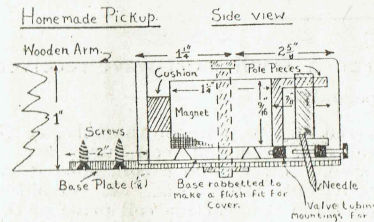 Homemade Pickup. Side view
Wooden Arm.
1¼" 2⅝"
Cushion
Pole Pieces
1¼"
Magnet
9/16
7/11"
1"
Screws
2"
Base Plate (⅛")
Base rabbetted to
make a flush fit for
Cover.
Needle
Valve tubing
mountings for